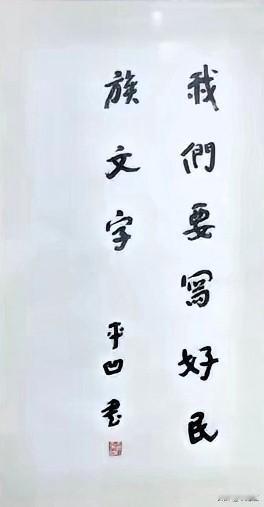 我們要寫好民
族文字
平凹书